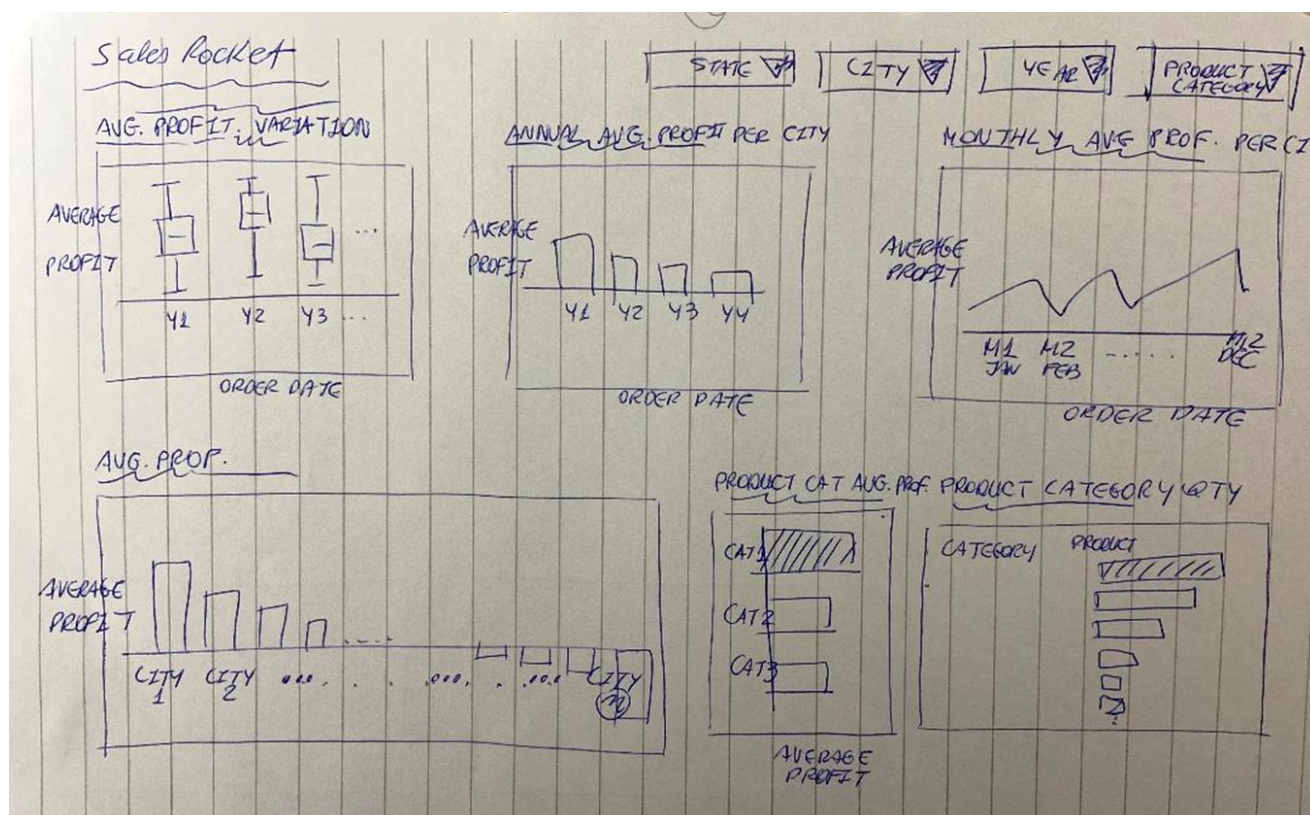 Sales Rocket
STATE
CITY
YEAR
PRODUCT
CATEGORY
AVG. PROFIT. VARIATION
AVERAGE
PROFIT
Y1 Y2 Y3 ...
ORDER DATE
ANNUAL AVG. PROFIT PER CITY
AVERAGE
PROFIT
Y1 Y2 Y3 Y4
ORDER DATE
MONTHLY AVG PROF. PER CI
AVERAGE
PROFIT
M1 M2 ..... M12
JAN FEB DEC
ORDER DATE
AVG. PROF.
AVERAGE
PROFIT
CITY CITY ... . . ... . ... CITY
1 2
PRODUCT CAT AVG. PROF.
CAT1
CAT2
CAT3
AVERAGE
PROFIT
PRODUCT CATEGORY QTY
CATEGORY PRODUCT